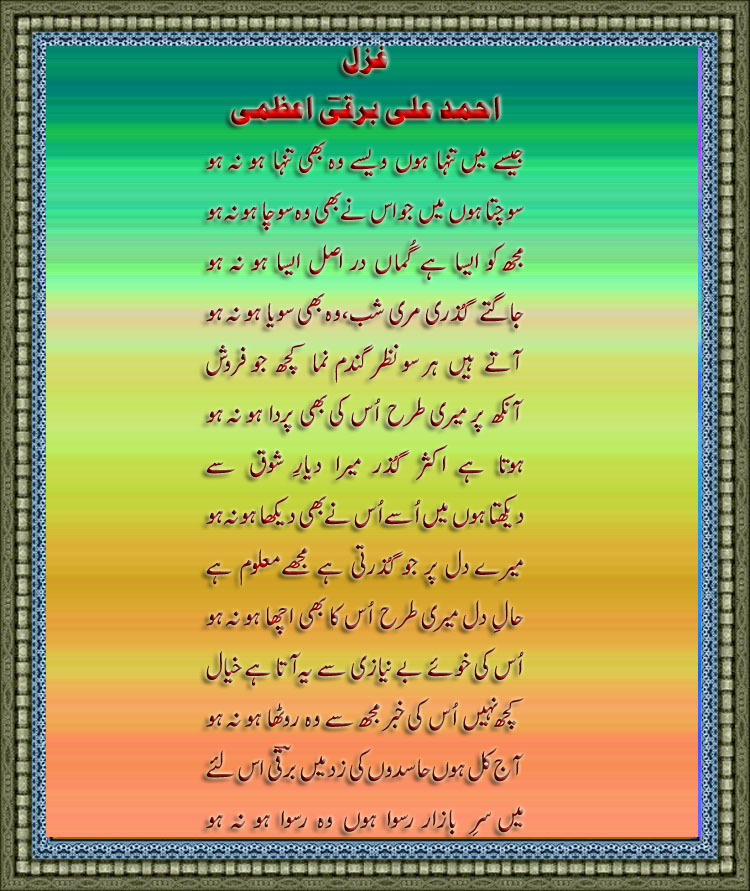 غزل
احمد علی برقیؔ اعظمی
جیسے میں تنہا ہوں ویسے وہ بھی تنہا ہو نہ ہو
سوچتا ہوں میں جو اس نے بھی وہ سوچا ہو نہ ہو
مجھ کو ایسا ہے گُماں در اصل ایسا ہو نہ ہو
جاگتے گذری مری شب، وہ بھی سویا ہو نہ ہو
آتے ہیں ہر سو نظر گندم نما کچھ جو فروش
آنکھ پر میری طرح اُس کی بھی پردا ہو نہ ہو
ہوتا ہے اکثر گذر میرا دیارِ شوق سے
دیکھتا ہوں میں اُسے اُس نے بھی دیکھا ہو نہ ہو
میرے دل پر جو گذرتی ہے مجھے معلوم ہے
حالِ دل میری طرح اُس کا بھی اچھا ہو نہ ہو
اُس کی خوئے بے نیازی سے یہ آتا ہے خیال
کچھ نہیں اُس کی خبر مجھ سے وہ روٹھا ہو نہ ہو
آج کل ہوں حاسدوں کی زد میں برقیؔ اس لئے
میں سرِ بازار رسوا ہوں وہ رسوا ہو نہ ہو